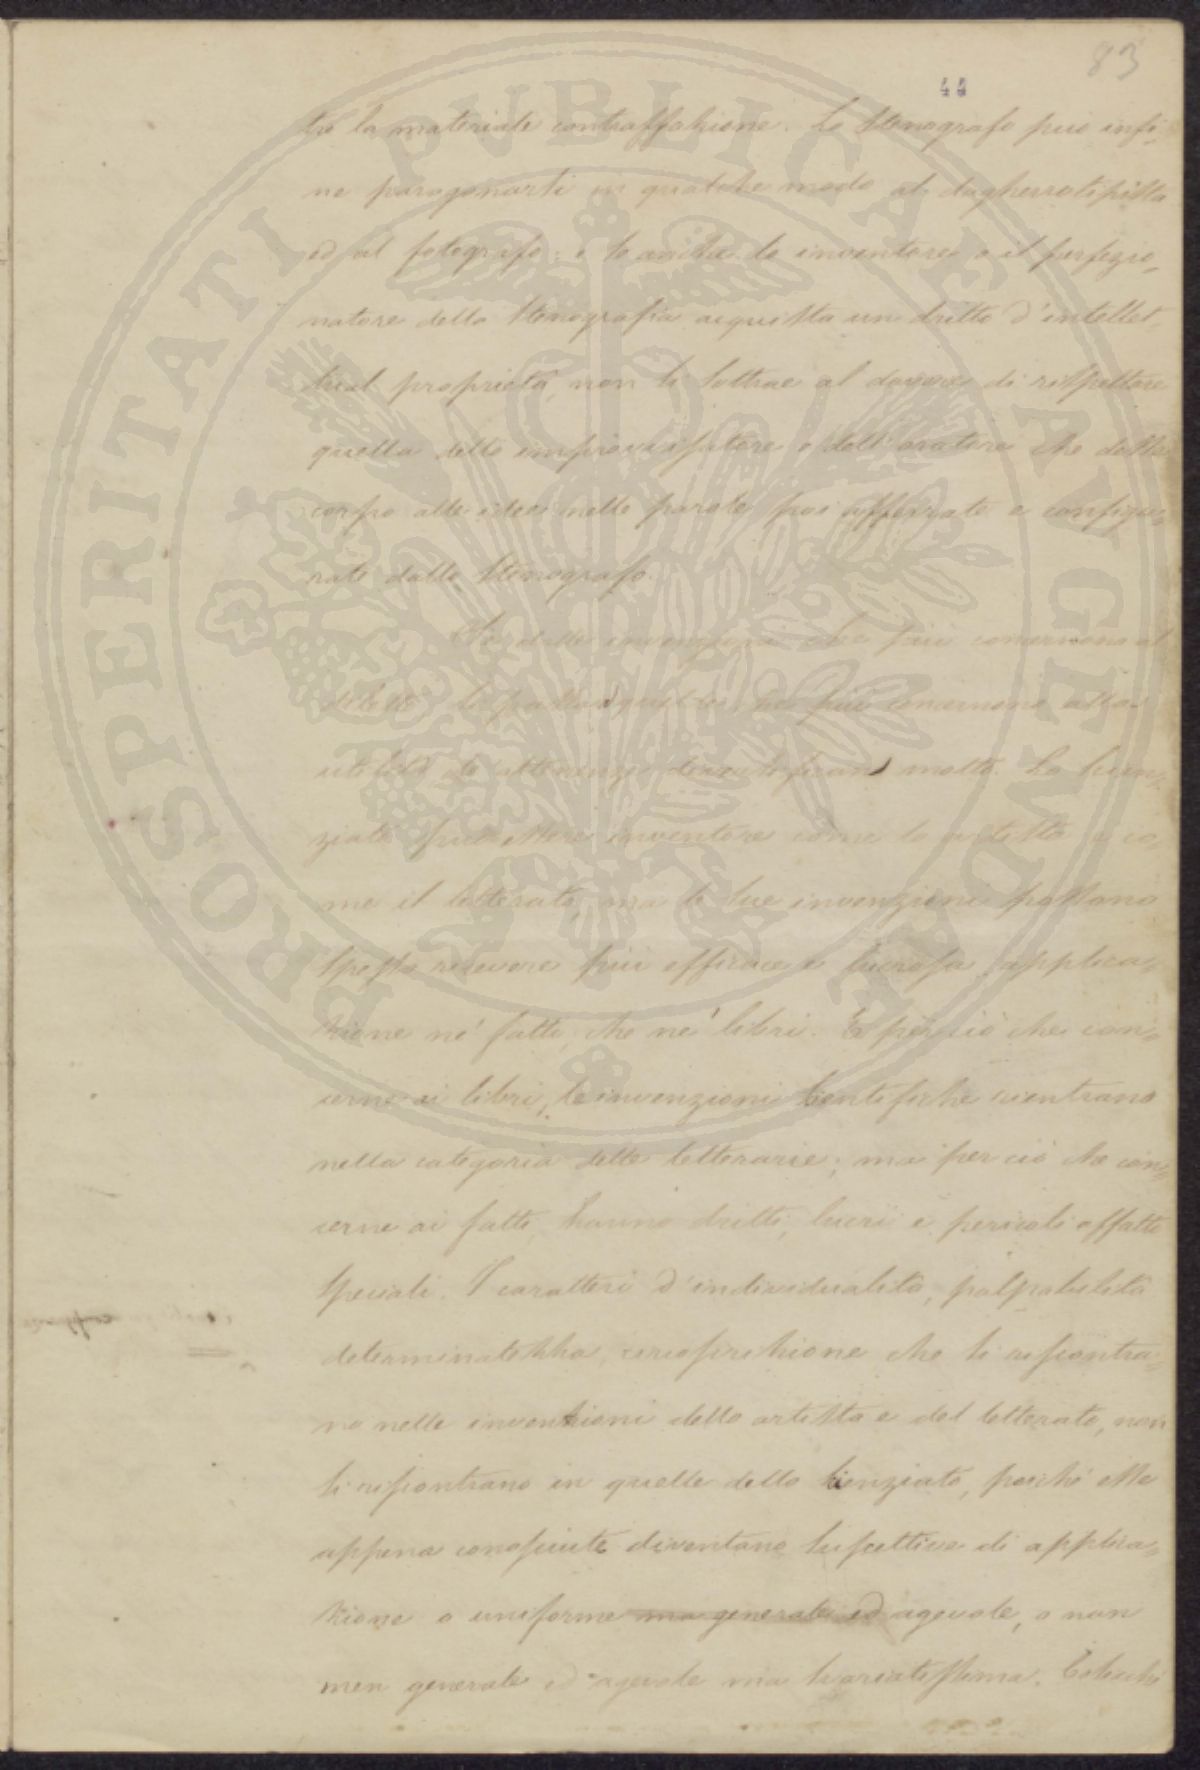 83
44
tro la materiale contraffazione. Lo Stenografo può infi-
ne paragonarsi in qualche modo al dagherrotipista
ed al fotografo: e se anche lo inventore o il perfezio-
natore della Stenografia acquista un dritto d'intellet-
tual proprietà, non si sottrae al dovere di rispettare
quella dello improvvisatore o dell'oratore che dette
corpo alle idee nelle parole poi afferrate e configu-
rate dallo Stenografo.
invenzioni che più concernono al
diletto si passa a quelle che più concernono alla
utilità le attenenze diversificano molto. Lo scien-
ziato può essere inventore come lo artista e co-
me il letterato, ma le sue invenzioni possono
spesso ricevere più efficace e lucrosa applica-
zione ne' fatti, che ne' libri. E per ciò che con-
cerne ai libri, le invenzioni scientifiche rientrano
nella categoria delle letterarie; ma per ciò che con-
cerne ai fatti, hanno dritti, lucri e pericoli affatto
speciali. I caratteri d'individualità, palpabilità
determinatezza, circoscrizione che si riscontra-
no nelle invenzioni dello artista e del letterato, non
si riscontrano in quelle dello scienziato, poichè esse
appena conosciute diventano suscettive di applica-
zione o uniforme ma generale ed agevole, o non
men generale ed agevole ma svariatissima. Cotechè